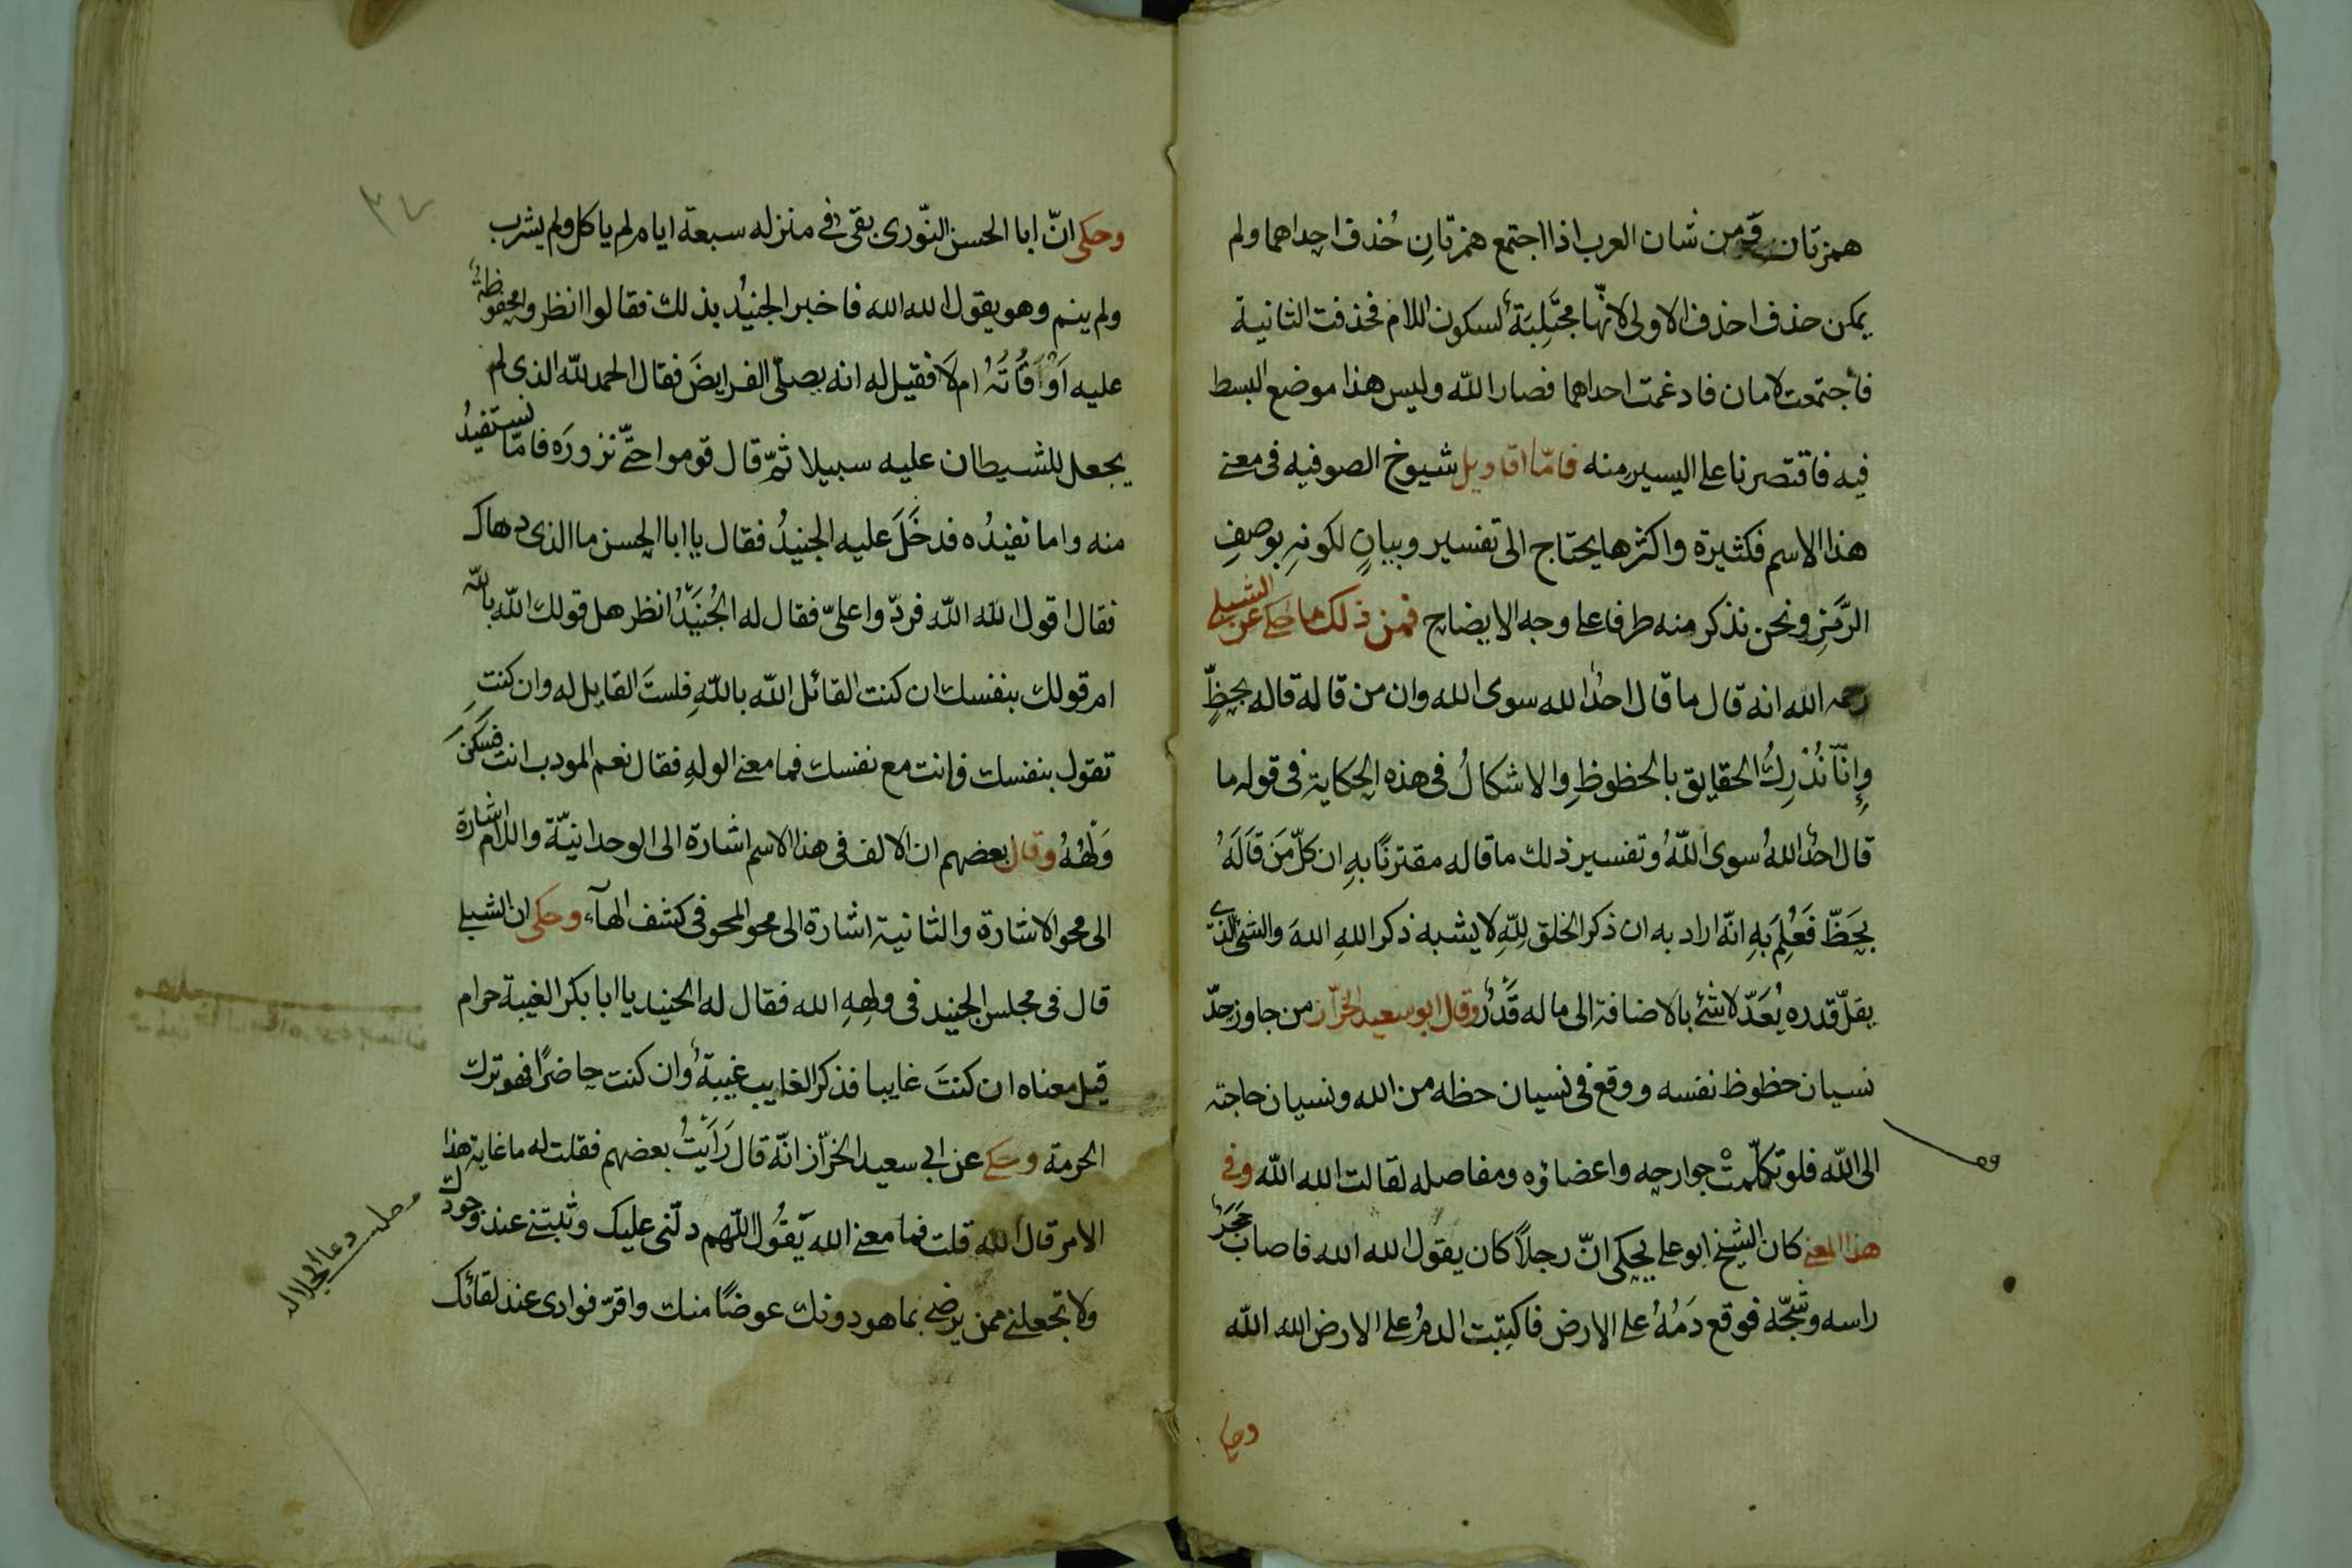 همزتان ومن شان العرب اذا اجتمع همزتانِ حُذف احداهما ولم
يمكن حذف احذف الاولى لانّها مجتَلِبَة لسكون اللام فحذفت الثانية
فاجتمعت لامان فادغمت احداهما فصار الله وليس هذا موضع البسط
فيه فاقتصرنا على اليسير منه فامّا اقاويل شيوخ الصوفيه فى معنى
هذا الاسم فكثيرة واكثرها يحتاج الى تفسير وبيانٍ لكونهِ بوصفِ
الرَّمَزِ ونحن نذكر منه طرفا على وجه الايضاح فمن ذلك ما حكى عن الشبلى
رحمه الله انه قال ما قال احدٌ الله سوى الله وان من قاله قاله بحظٍّ
وانّا نُدرِكُ الحقايق بالحظوظِ والاشكالُ فى هذه الحكاية فى قوله ما
قال احدٌ اللهُ سوى اللهُ وتفسير ذلك ما قاله مقترنًا بهِ ان كلّ مَن قَالَهُ
بحَظّ فَعُلِمَ بهِ انّه اراد به ان ذكر الخلق لِلّهِ لا يشبه ذكر اللهِ اللهَ والشئ الذى
يقلّ قدره يُعَدّ لا شئ بالاضافة الى ما له قَدْرٌ وقال ابو سعيد الخرّاز من جاوز حدّ
نسيان حظوظ نفسه ووقع فى نسيان حظه من الله ونسيان حاجته
الى الله فلو تكلّمتْ جوارحه واعضاؤه ومفاصله لقالت الله الله وفى
هذا المعنى كان الشيخ ابو على يحكى انّ رجلاً كان يقول الله الله فاصاب حَجَرٌ
راسه وشجّه فوقع دَمُهُ على الارض فاكتبت الدمُ على الارض الله الله
وحكى
وحكى انّ ابا الحسن النّورى بقى فى منزله سبعة ايام لم ياكل ولم يشرب
ولم ينم وهو يقول الله الله فاخبر الجنيدُ بذلك فقالوا انظروا محفوظةٌ
عليه اَوْقَاتُهُ ام لَا فقيل له انه يصلّى الفرايضَ فقال الحمد لله الذى لم
يجعل للشيطان عليه سبيلا ثمّ قال قوموا حتّى نزورَه فامّا نستفيدُ
منه واما نفيدُه فدخَلَ عليه الجنيدُ فقال يا ابا الحسن ما الذى دهاك
فقال اقول الله الله فردّوا علىّ فقال له الجُنَيْدُ انظر هل قولك الله بالله
ام قولك بنفسك ان كنت القائل الله باللهِ فلستَ القايل له وان كنتِ
تقول بنفسك فانت مع نفسك فما معنى الولهِ فقال نعم المودب انت فسَكَنَ
وَلَهُهُ وقال بعضهم ان الالف فى هذا الاسم اشارة الى الوحدانيّة واللام اشارة
الى محو الاشارة والثانية اشارة الى محو المحو فى كشف الهآء وحكى ان الشبلى
قال فى مجلس الجنيد فى ولهِهِ الله فقال له الجنيد يا ابا بكر الغيبة حرام
قيل معناه ان كنتَ غايبا فذكر الغايب غيبةٌ وان كنت حاضرًا فهو ترك
الحرمة وحكى عن ابى سعيد الخرّاز انّه قال رَاَيْتُ بعضهم فقلت له ما غاية هذا
الامر قال الله قلت فما معنى الله يَقُولُ اللّهم دلّنى عليك وثبتنى عند وجودك
ولا تجعلنى ممن يرضى بما هو دونك عوضًا منك واقرّ فوادى عند لقائك
مطلب دعا الجلاله